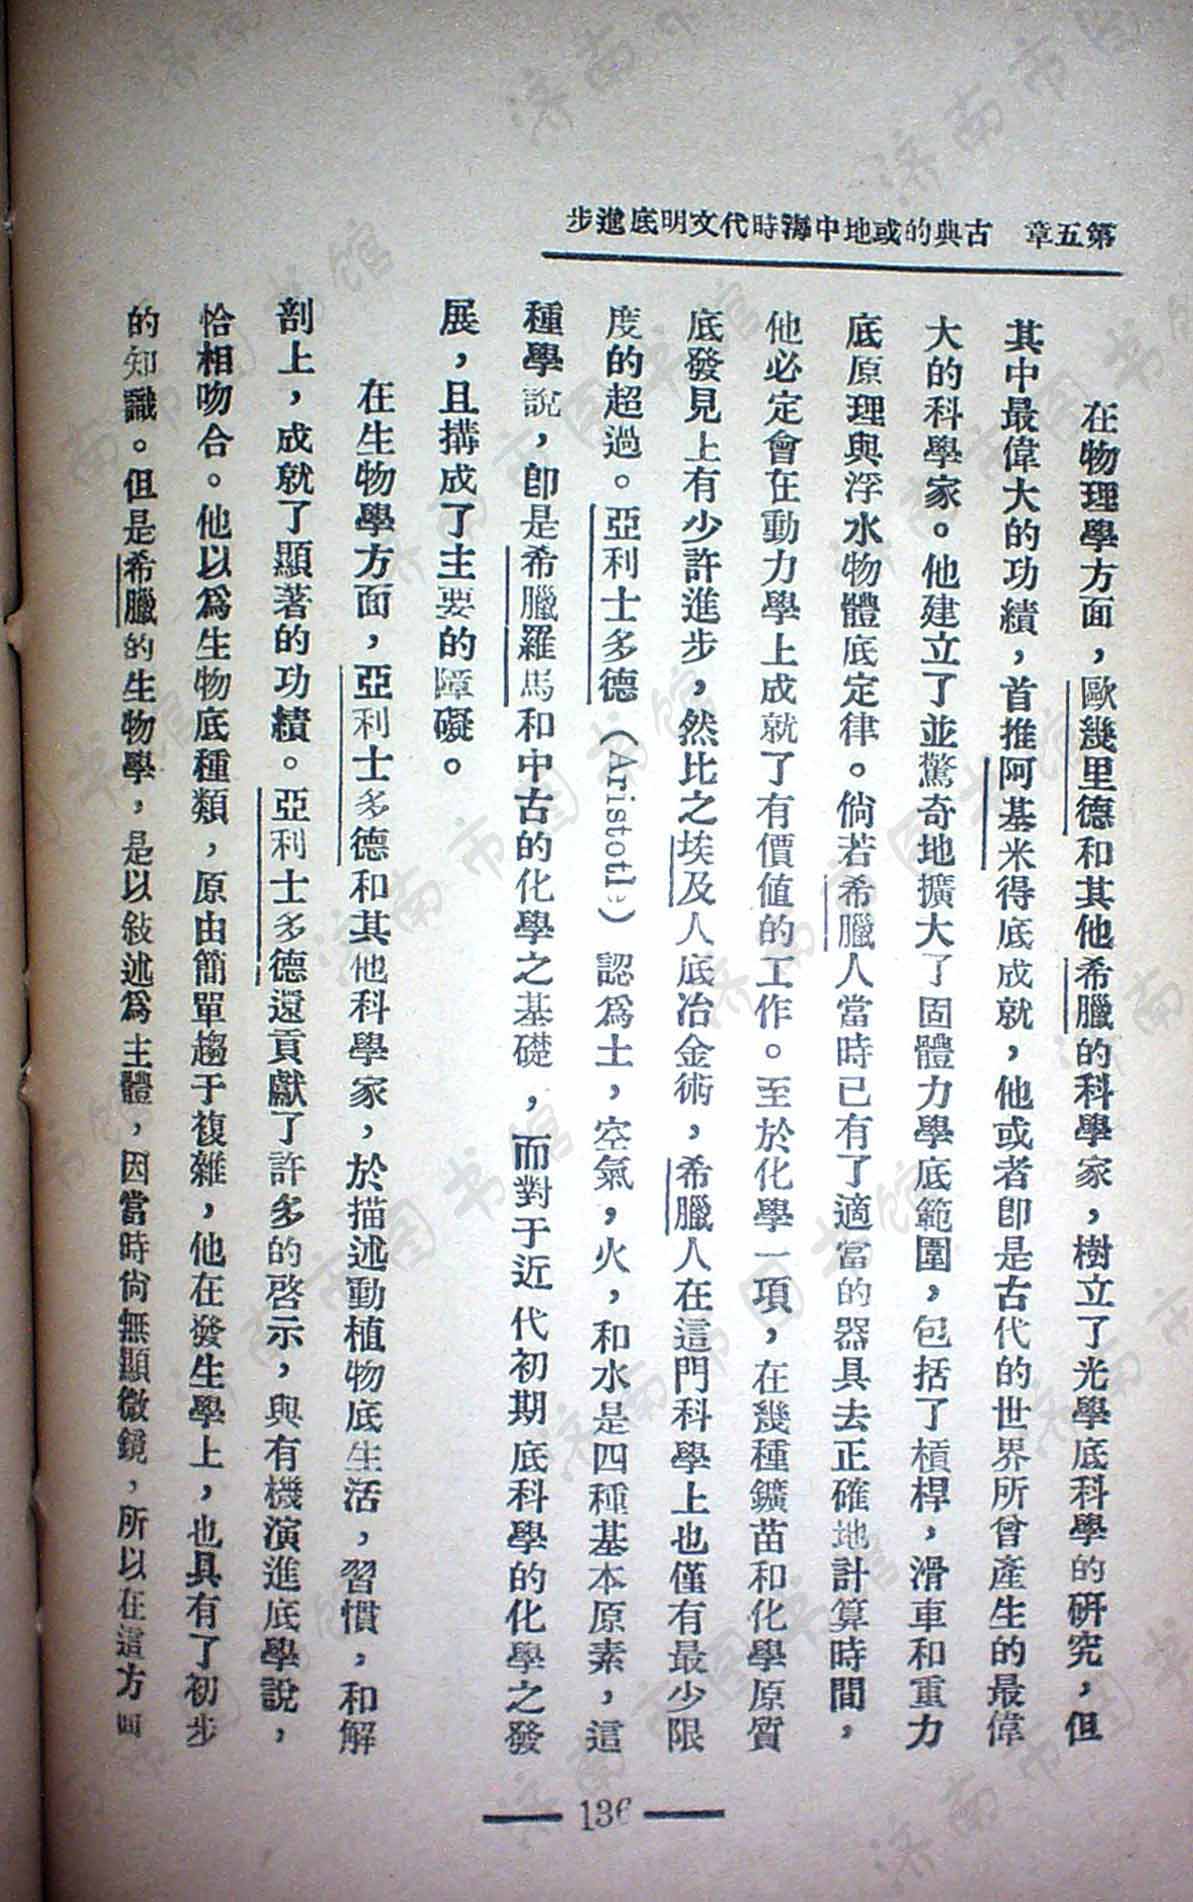 第五章　古典的或地中海時代文明底進步
在物理學方面，歐幾里德和其他希臘的科學家，樹立了光學底科學的研究，但
其中最偉大的功績，首推阿基米得底成就，他或者卽是古代的世界所曾產生的最偉
大的科學家。他建立了並驚奇地擴大了固體力學底範圍，包括了槓桿，滑車和重力
底原理與浮水物體底定律。倘若希臘人當時已有了適當的器具去正確地計算時間，
他必定會在動力學上成就了有價値的工作。至於化學一項，在幾種鑛苗和化學原質
底發見上有少許進步，然比之埃及人底冶金術，希臘人在這門科學上也僅有最少限
度的超過。亞利士多德（Aristotle）認爲土，空氣，火，和水是四種基本原素，這
種學說，卽是希臘羅馬和中古的化學之基礎，而對于近代初期底科學的化學之發
展，且搆成了主要的障礙。
在生物學方面，亞利士多德和其他科學家，於描述動植物底生活，習慣，和解
剖上，成就了顯著的功績。亞利士多德還貢獻了許多的啓示，與有機演進底學說，
恰相吻合。他以爲生物底種類，原由簡單趨于複雜，他在發生學上，也具有了初步
的知識。但是希臘的生物學，是以敍述爲主體，因當時尙無顯微鏡，所以在這方面
136
济南市图书馆